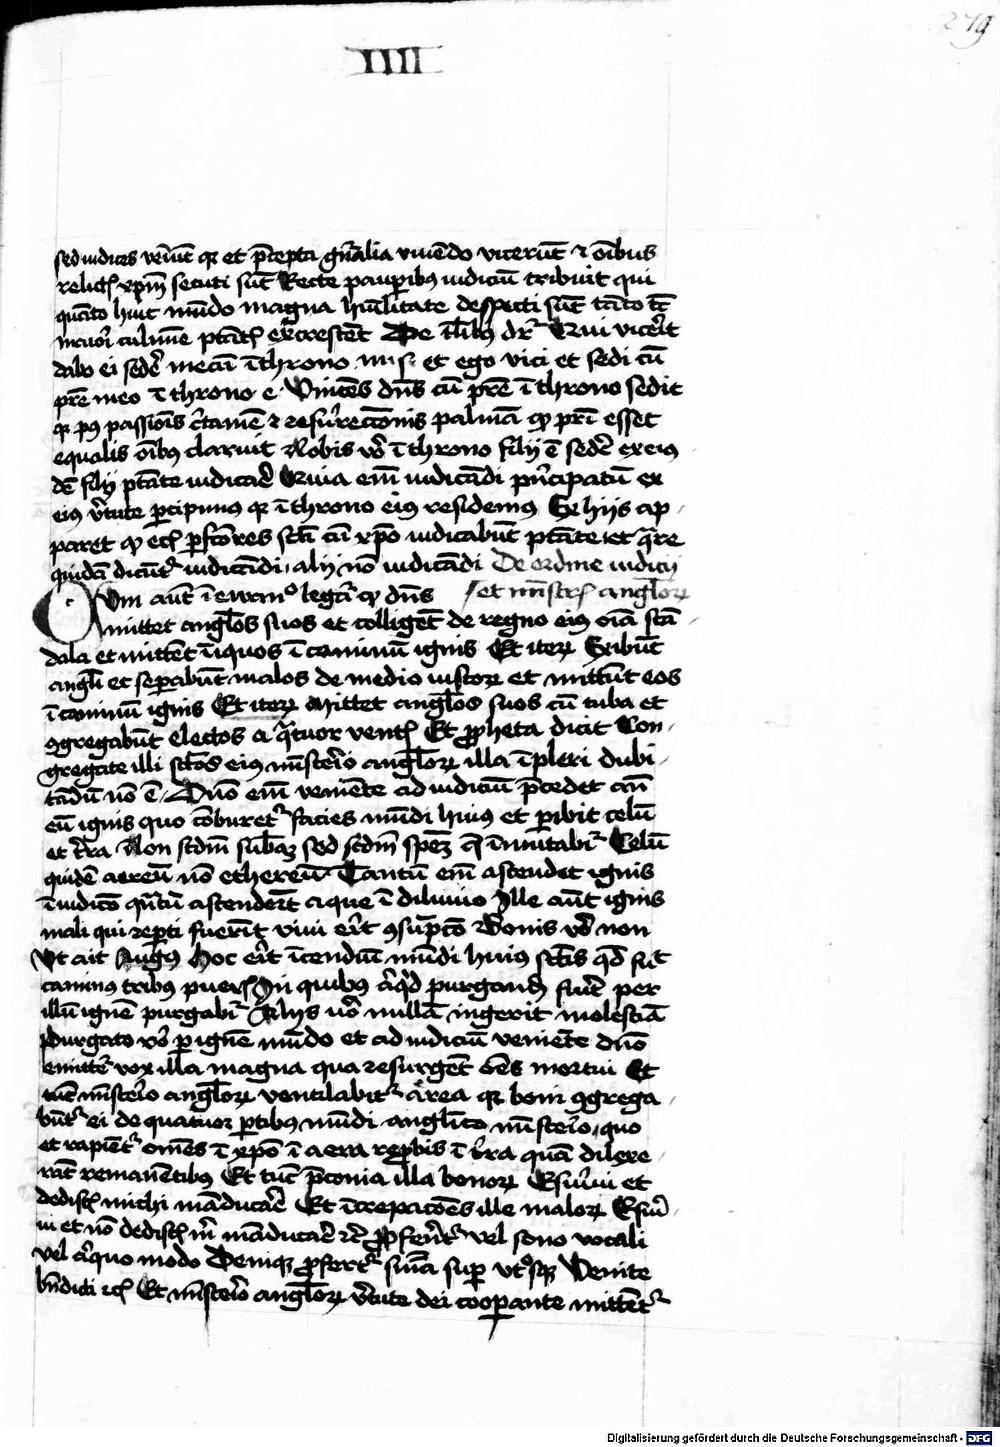 279
IIII
sed iudices veniūt qꝫ et p̄cepta gn̄alia viuēdo vicerūt ⁊ oībus
relict͛ xp̄m secuti sūt Recte paupibus iudiciū tribuit qui
quāto huic mūdo magna hūilitate despecti sūt tāto tūc
maiori culmine ptāt͛ excrescēt De talibꝰ dr̄ Qui vicerit
dabo ei sedē mecū ī throno meo sic et ego vici et sedi cū
pr̄e meo ī throno eiꝰ Vincēs dn̄s cū pr̄e ī throno sedit
qꝫ pꝰ passiōis c̄tamē ⁊ resurrectōnis palmā qꝫ pr̄i esset
equalis oībꝰ claruit Nobis vō ī throno filij ē sedē ex eiꝰ
dē filij ptāte iudicare Quia em̄ iudicādi pn̄cipatū ex
eiꝰ v̄tute p̱cipimus qꝫ ī throno eiꝰ residemus Ex hijs ap
paret qꝫ ecī p̱fctiores sct̄i cū xp̄o iudicabūt ptāte et q̄re
quidā dicūt͛ iudicādi alij nō iudicādi De ordine iudicij
Cum aūt ī ewan° legat͛ qꝫ dn̄s et mīstr̄ angl̄oꝝ
mittet angl̄os suos et colligēt de regno eiꝰ oīa scā
dala et mittēt īiquos ī caminū ignis Et iteꝝ Exibūt
angl̄i et sep̱abūt malos de medio iustoꝝ et mittūt eos
ī caminū ignis Et iteꝝ Mittet angl̄os suos cū tuba et
ꝯgregabūt electos a q̄tuor vent͛ Et ꝓpheta dicit Con
gregate illi sct̄os eiꝰ mīsterio angl̄oꝝ illa īpleri dubi
tādū nō ē Dn̄o em̄ veniēte ad iudiciū p̄cedet an̄
eū ignis quo cōburet͛ facies mūdi huiꝰ et p̱ibit celū
et t̄ra Non scd̄m sub̄aꝫ sed scd̄m spēꝫ q̄ īmutabit͛ Celū
quidē aereū nō ethereū Tantū em̄ ascendet ignis
ī iudicō qn̄tū ascenderūt aque ī diluuio Ille aūt ignis
mali qui rep̱ti fuerīt viui erit ꝯsūptō Bonis vō non
Vt ait Augꝰ Hoc erit īcendiū mūdi huiꝰ sct̄is qd̄ fuit
caminus tribus pueris In quibus aliqd̄ purgandū fuerit per
illū ignē purgabit͛ Alijs vō nullā ingerit molestiā
Purgato vō p̱ ignē mūdo et ad iudiciū veniēte dn̄o
emittet͛ vox illa magna qua resurgēt oēs mortui Et
tūc mīsterio angl̄oꝝ ventilabit͛ area qꝫ boni ꝯgrega
būt͛ ei de quatuor p̱tibus mūdi anglico mīsterio quo
et rapiēt͛ omēs ī xp̄o ī aera rep̱bis ī t̄ra quā dilexe
rāt remanētibus Et tūc p̄conia illa bonoꝝ Esuriui et
dedist͛ michi māducare Et īcrepacōes ille maloꝝ Esuri
ui et nō dedist͛ m̄ māducare ⁊c̄ ꝓferēt͛ vel sono vocali
vel aliquo modo Deniqꝫ ꝓfert͛ sn̄ia sup vtosqꝫ Venite
bn̄dicti ⁊c̄ Et mīsterio angl̄oꝝ v̄tute dei coop̱ante mittēt͛
Digitalisierung gefördert durch die Deutsche Forschungsgemeinschaft - DFG